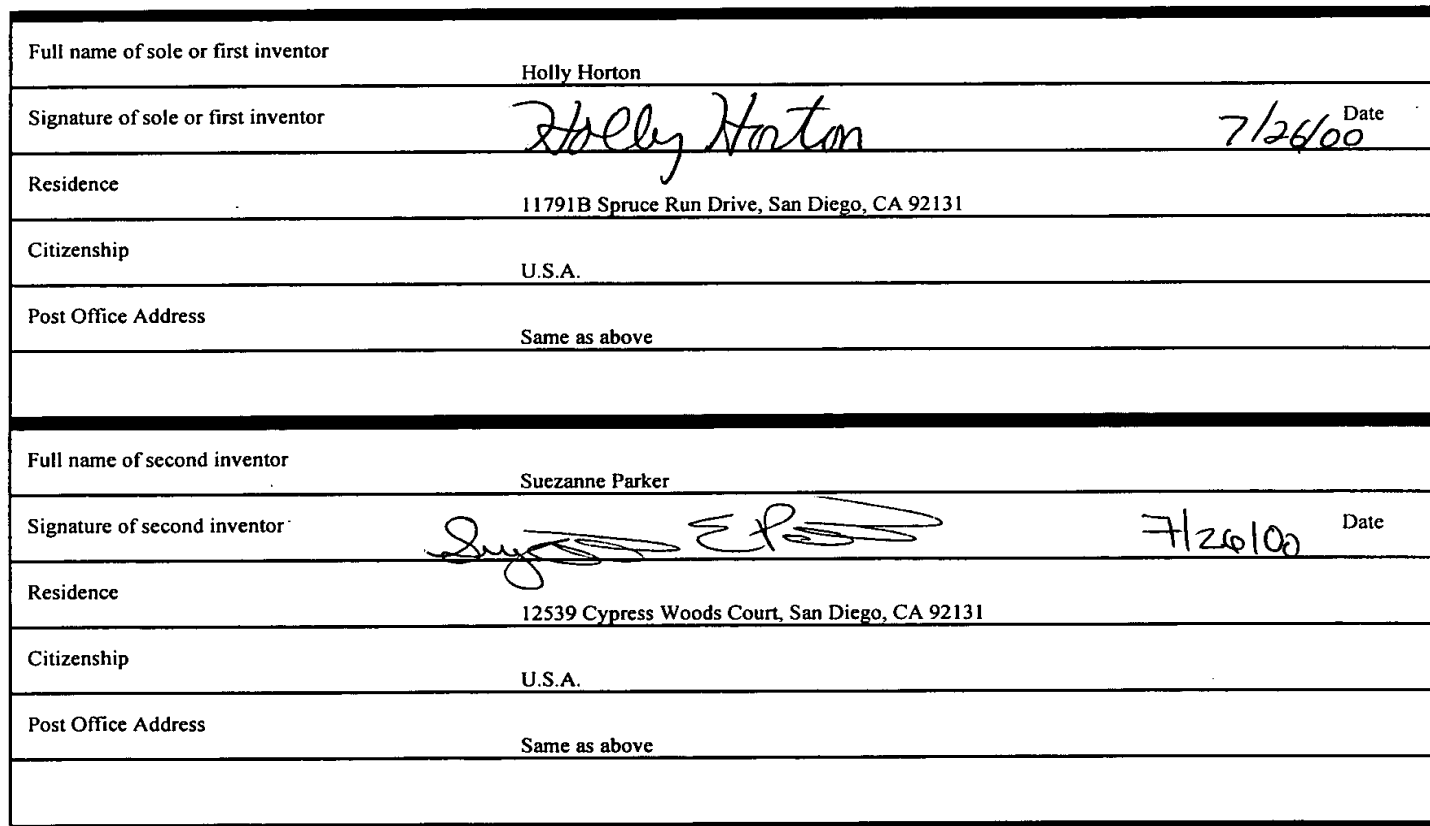 Full name of sole or first inventor
Holly Horton
Signature of sole or first inventor Holly Horton 7/26/00 Date
Residence
11791B Spruce Run Drive, San Diego, CA 92131
Citizenship
U.S.A.
Post Office Address
Same as above
Full name of second inventor
Suezanne Parker
Signature of second inventor 7/26/00 Date
Residence
12539 Cypress Woods Court, San Diego, CA 92131
Citizenship
U.S.A.
Post Office Address
Same as above